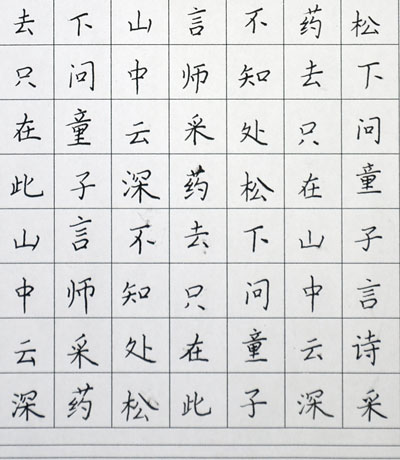 松下问童子言诗采
药去只在山中云深
不知处松下问童子
言师采药去只在此
山中云深不知处松
下问童子言师采药
去只在此山中云深